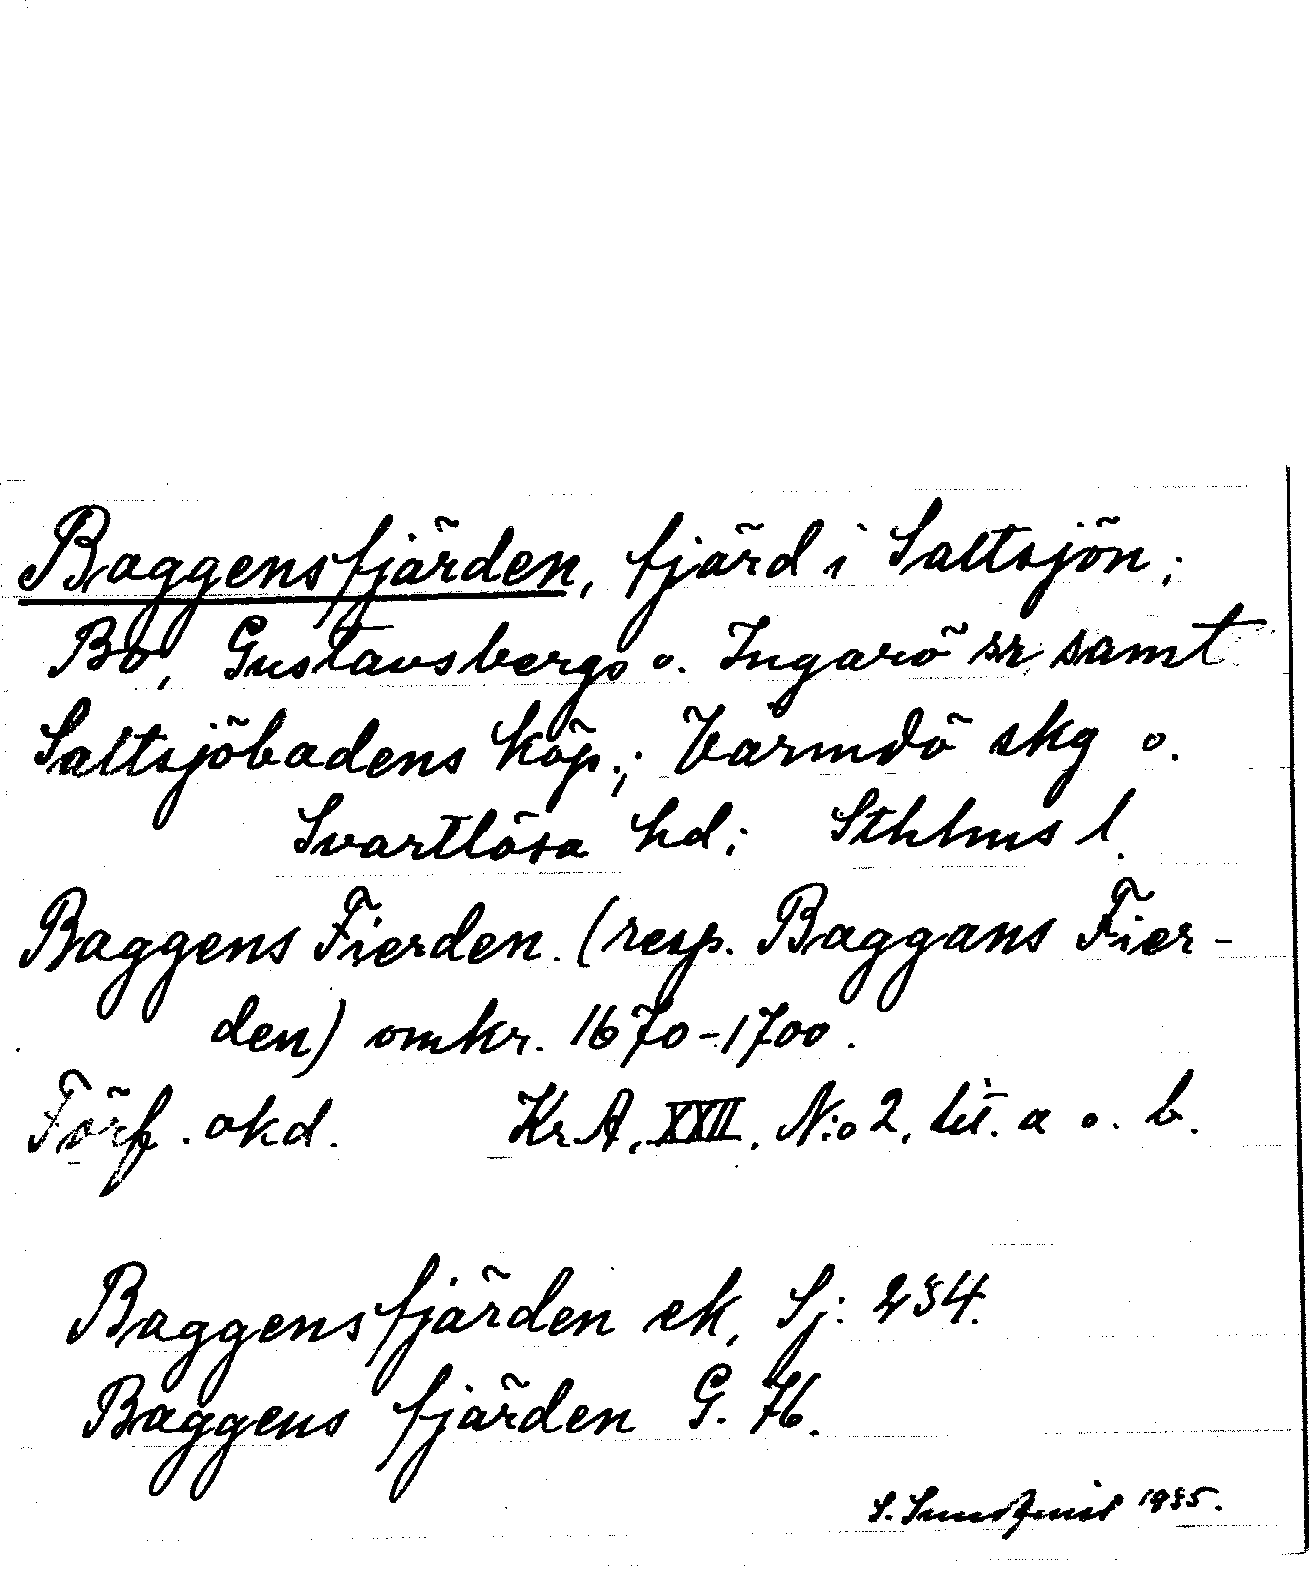 Baggensfjärden, fjärd i Saltsjön;
Bo, Gustavsbergs o. Ingarö sr samt
Saltsjöbadens köp.; Värmdö skg o.
Svartlösa hd; Sthlms l.
Baggens Fierden. (resp. Baggans Fier-
den) omkr. 1670-1700.
Förf. okd. Kr. A. XXII, N:o 2, lit. a o. b.
Baggensfjärden ek, Sj: 234.
Baggens fjärden G. 76.
S. Sundquist 1935.